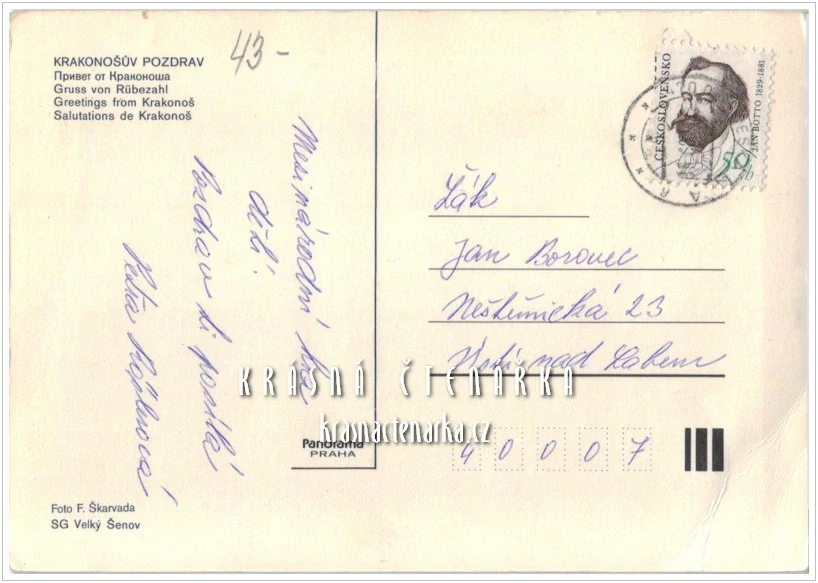 KRAKONOŠŮV POZDRAV
Привет от Краконоша
Gruss von Rübezahl
Greetings from Krakonoš
Salutations de Krakonoš
43-
Mezinárodní hra
dětí.
Pozdrav ti posílá
Foto F. Škarvada
SG Velký Šenov
Panorama
PRAHA
ČESKOSLOVENSKO
JÁN BOTTO 1829-1881
50 h
Žák
Jan Borovec
Neštěmická 23
Ústí nad Labem
40007
KRÁSNÁ ČTENÁŘKA
krasnactenarka.cz